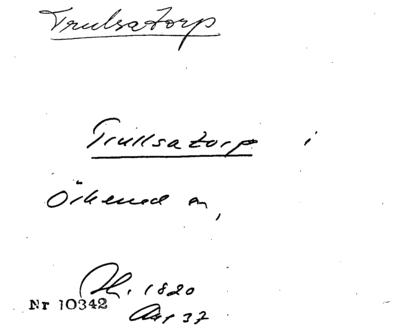 Trulsatorp
Trullsatorp i
Örkened sn,
1820
Nr 10342
37